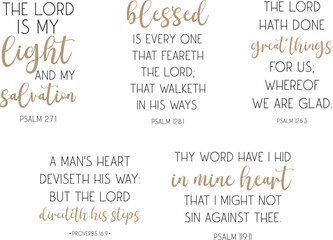 THE LORD
IS MY
light
AND MY
salvation
PSALM 27:1
blessed
IS EVERY ONE
THAT FEARETH
THE LORD;
THAT WALKETH
IN HIS WAYS.
PSALM 128:1
THE LORD
HATH DONE
great things
FOR US;
WHEREOF
WE ARE GLAD.
PSALM 126:3
A MAN'S HEART
DEVISETH HIS WAY:
BUT THE LORD
directeth his steps
• PROVERBS 16:9 •
THY WORD HAVE I HID
in mine heart
THAT I MIGHT NOT
SIN AGAINST THEE.
PSALM 119:11